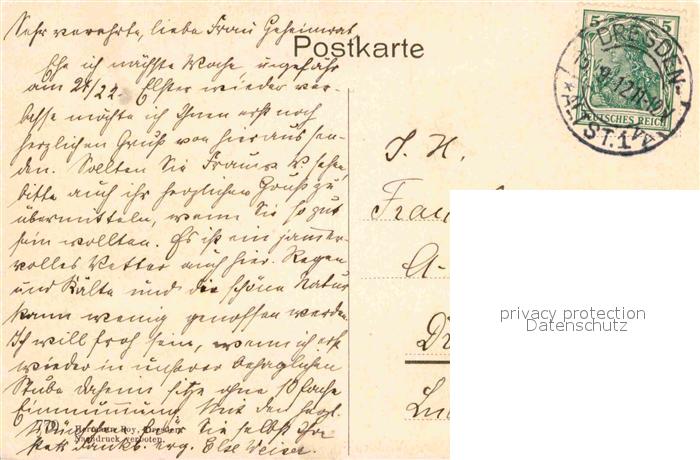 Sehr verehrte, liebe Frau Geheimrat
Postkarte
Ehe ich nächste Woche ungefähr
am 21/22. Elster wieder ver-
lasse möchte ich Ihnen erst noch
herzlichen Gruß von hier aus sen-
den. Sollten Sie Frau W. sehen,
bitte auch ihr herzlichen Gruß zu
übermitteln, wenn Sie so gut
sein wollten. Es ist ein jammer-
volles Wetter auch hier. Regen
und Kälte und die schöne Natur
kann wenig genossen werden.
Ich will froh sein, wenn ich erst
wieder in unserer behaglichen
Stube daheim sitze ohne 10fache
Einmummung. Mit den herzl.
Sie selbst Ihre
stets dankb. erg. Else Weiser.
Nachdruck verboten.
DRESDEN-
ALTST. 1
5 5
DEUTSCHES REICH
I. H.
Frau
privacy protection
Datenschutz